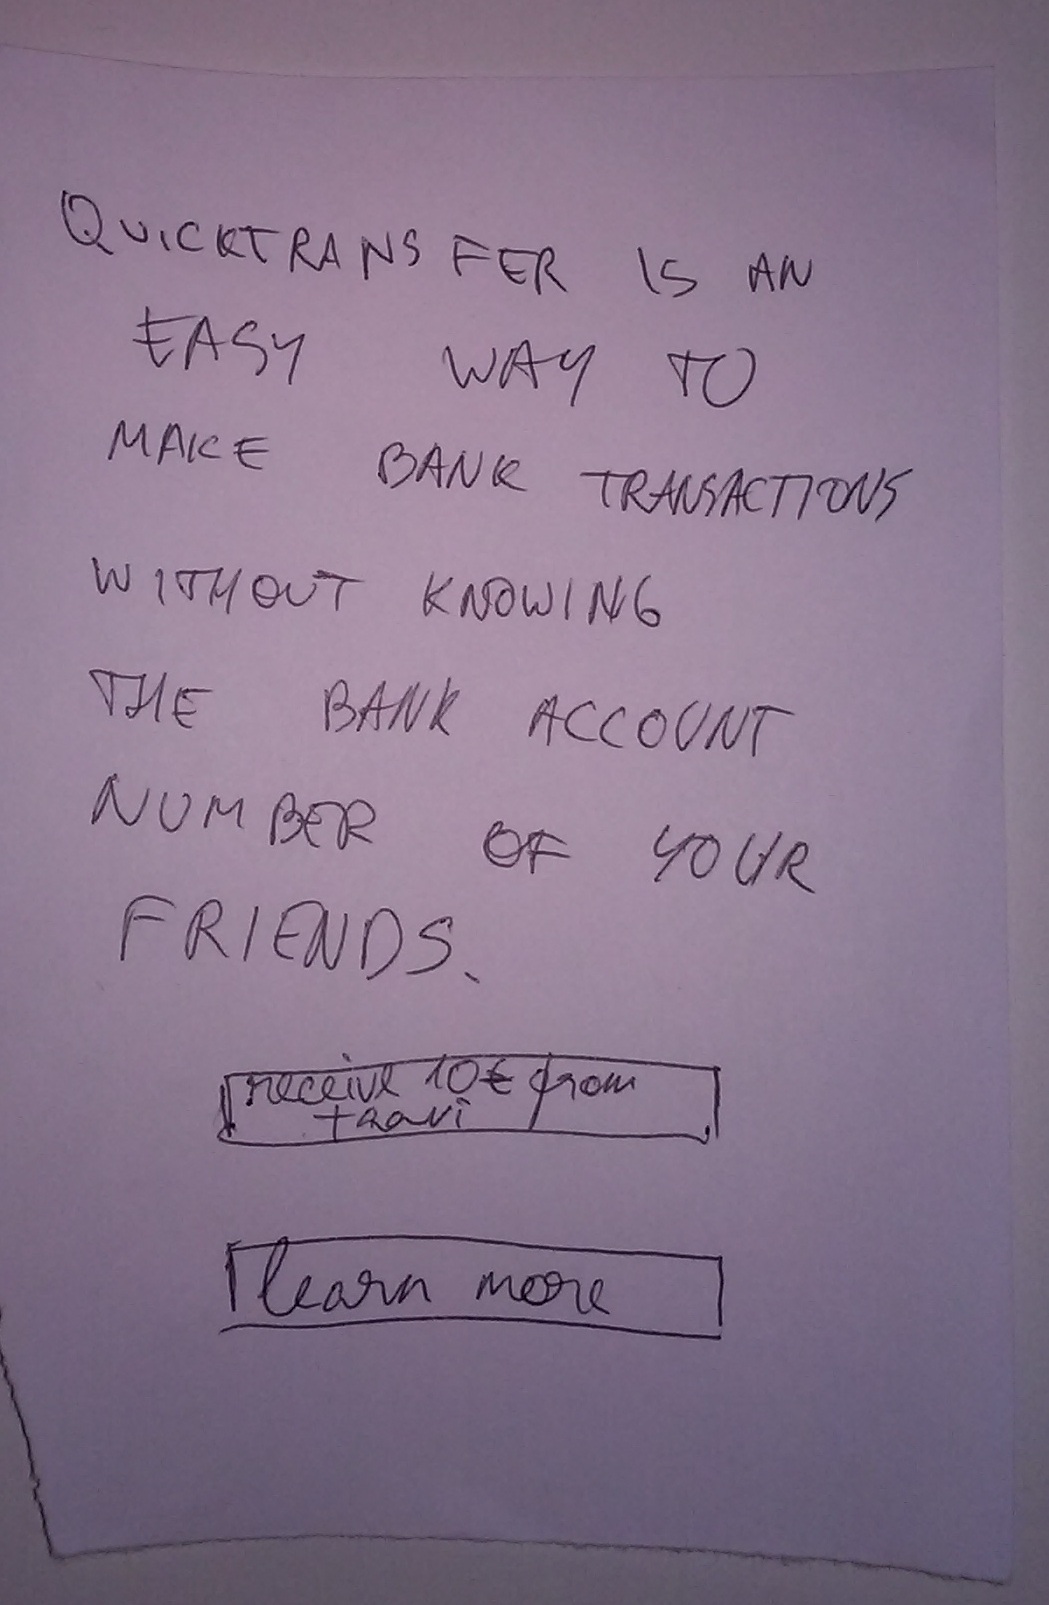 QUICKTRANSFER IS AN
EASY WAY TO
MAKE BANK TRANSACTIONS
WITHOUT KNOWING
THE BANK ACCOUNT
NUMBER OF YOUR
FRIENDS.
receive 10€ from
travi
learn more